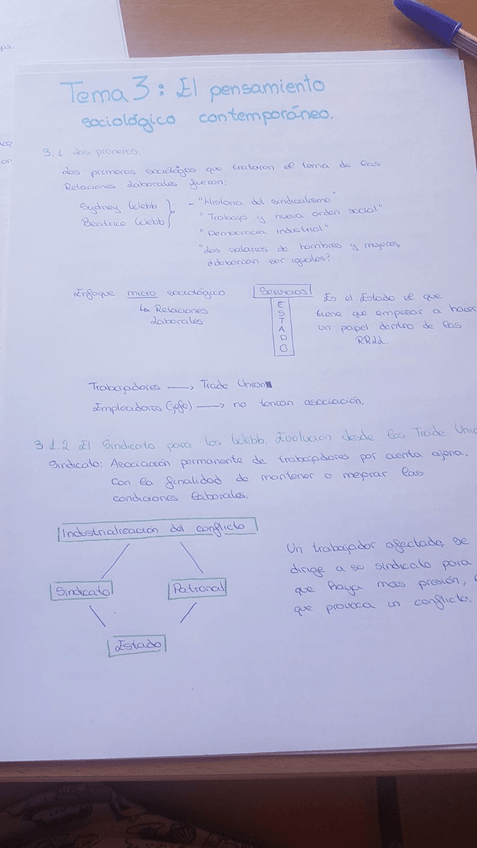 Tema 3: El pensamiento
sociológico contemporáneo.
3.1 Los pioneros
Los primeros sociólogos que trataron el tema de las
Relaciones Laborales fueron:
Sydney Webb
Beatrice Webb
- "Historia del sindicalismo"
"Trabajo y nueva orden social"
"Democracia industrial"
"Los salarios de hombres y mujeres,
¿deberían ser iguales?
Enfoque micro sociológico
Relaciones
Laborales
Servicios
ESTADO
Es el Estado el que
tiene que empezar a hacer
un papel dentro de las
RRLL.
Trabajadores → Trade Union
Empleadores (jefe) → no tenían asociación.
3.1.2 El Sindicato para los Webb. Evolución desde las Trade
Sindicato: Asociación permanente de trabajadores por cuenta ajena.
Con la finalidad de mantener o mejorar las
condiciones laborales.
Industrialización del conflicto
Sindicato Patronal
Estado
Un trabajador afectado, se
dirige a su sindicato para
que haya más presión,
que provoca un conflicto.